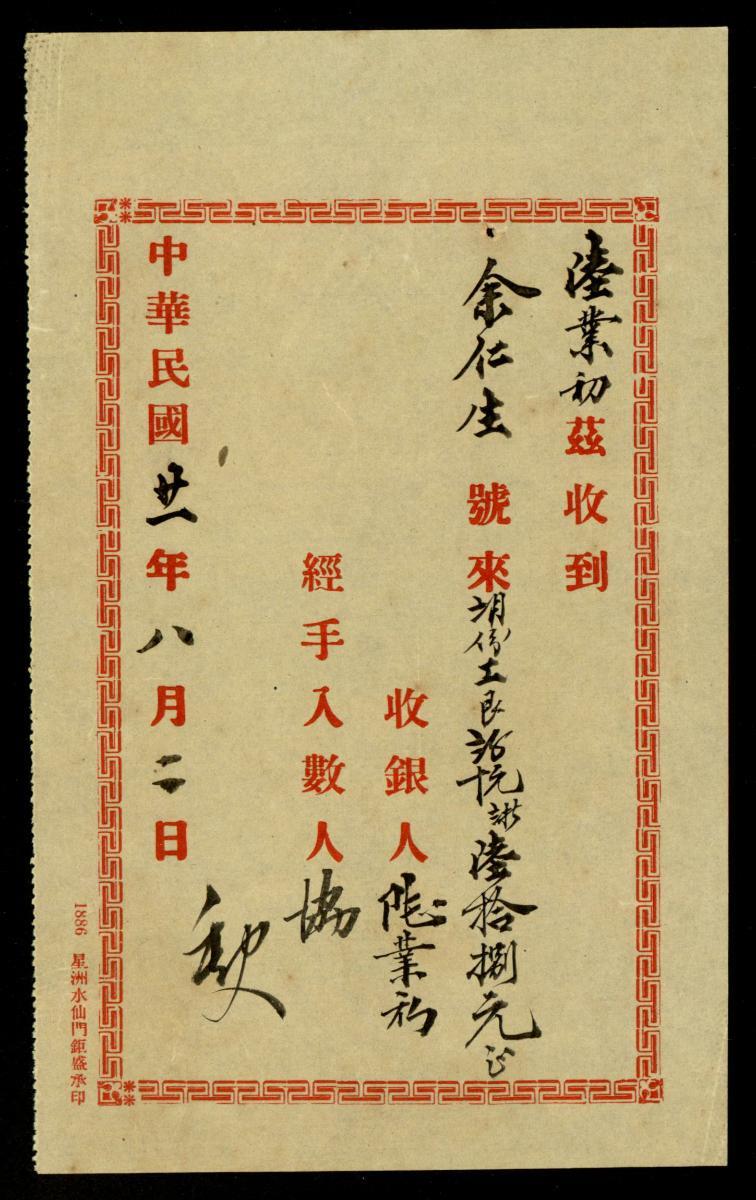 陸業初茲收到
余仁生號來 月份工艮 陸拾捌元正
收銀人 陸業初
經手入數人 協
中華民國廿一年八月二日
1886 星洲水仙門鉅盛承印